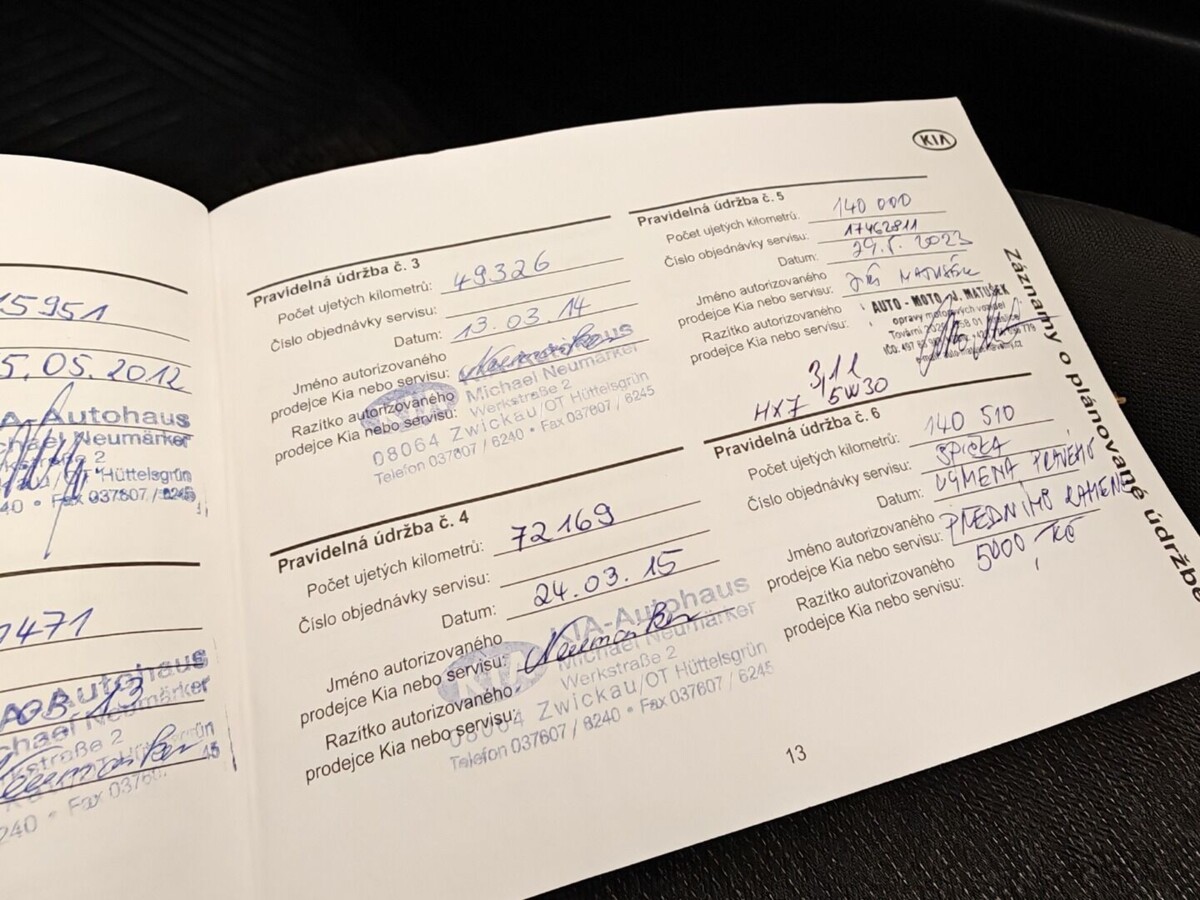 15951
5.05.2012
A-Autohaus
chael Neumärker
rkstraße 2
au/OT Hüttelsgrün
40 • Fax 037607 / 6245
1471
A-Autohaus
13
chael Neumärker
rkstraße 2
240 • Fax 0376
Pravidelná údržba č. 3
Počet ujetých kilometrů: 49326
Číslo objednávky servisu:
Datum: 13.03.14
Jméno autorizovaného
prodejce Kia nebo servisu:
Razítko autorizovaného
prodejce Kia nebo servisu:
KIA
Michael Neumärker
Werkstraße 2
08064 Zwickau/OT Hüttelsgrün
Telefon 037607 / 6240 • Fax 037607 / 6245
Pravidelná údržba č. 4
Počet ujetých kilometrů: 72169
Číslo objednávky servisu:
Datum: 24.03.15
Jméno autorizovaného
prodejce Kia nebo servisu:
Razítko autorizovaného
prodejce Kia nebo servisu:
KIA-Autohaus
Michael Neumärker
Werkstraße 2
08064 Zwickau/OT Hüttelsgrün
Telefon 037607 / 6240 • Fax 037607 / 6245
KIA
Pravidelná údržba č. 5
Počet ujetých kilometrů: 140 000
Číslo objednávky servisu: 17462811
Datum: 2023
Jméno autorizovaného
prodejce Kia nebo servisu: JIŘÍ MATUŠEK
Razítko autorizovaného
prodejce Kia nebo servisu:
AUTO - MOTO J. MATUŠEK
opravy motorových vozidel
3,1 l
HX7 5W30
Pravidelná údržba č. 6
Počet ujetých kilometrů: 140 510
Číslo objednávky servisu:
Datum: VÝMĚNA PRAVÉHO
Jméno autorizovaného
prodejce Kia nebo servisu: PŘEDNÍHO RAMENE
Razítko autorizovaného 5000 Kč
prodejce Kia nebo servisu:
Záznamy o plánované údržbě
13